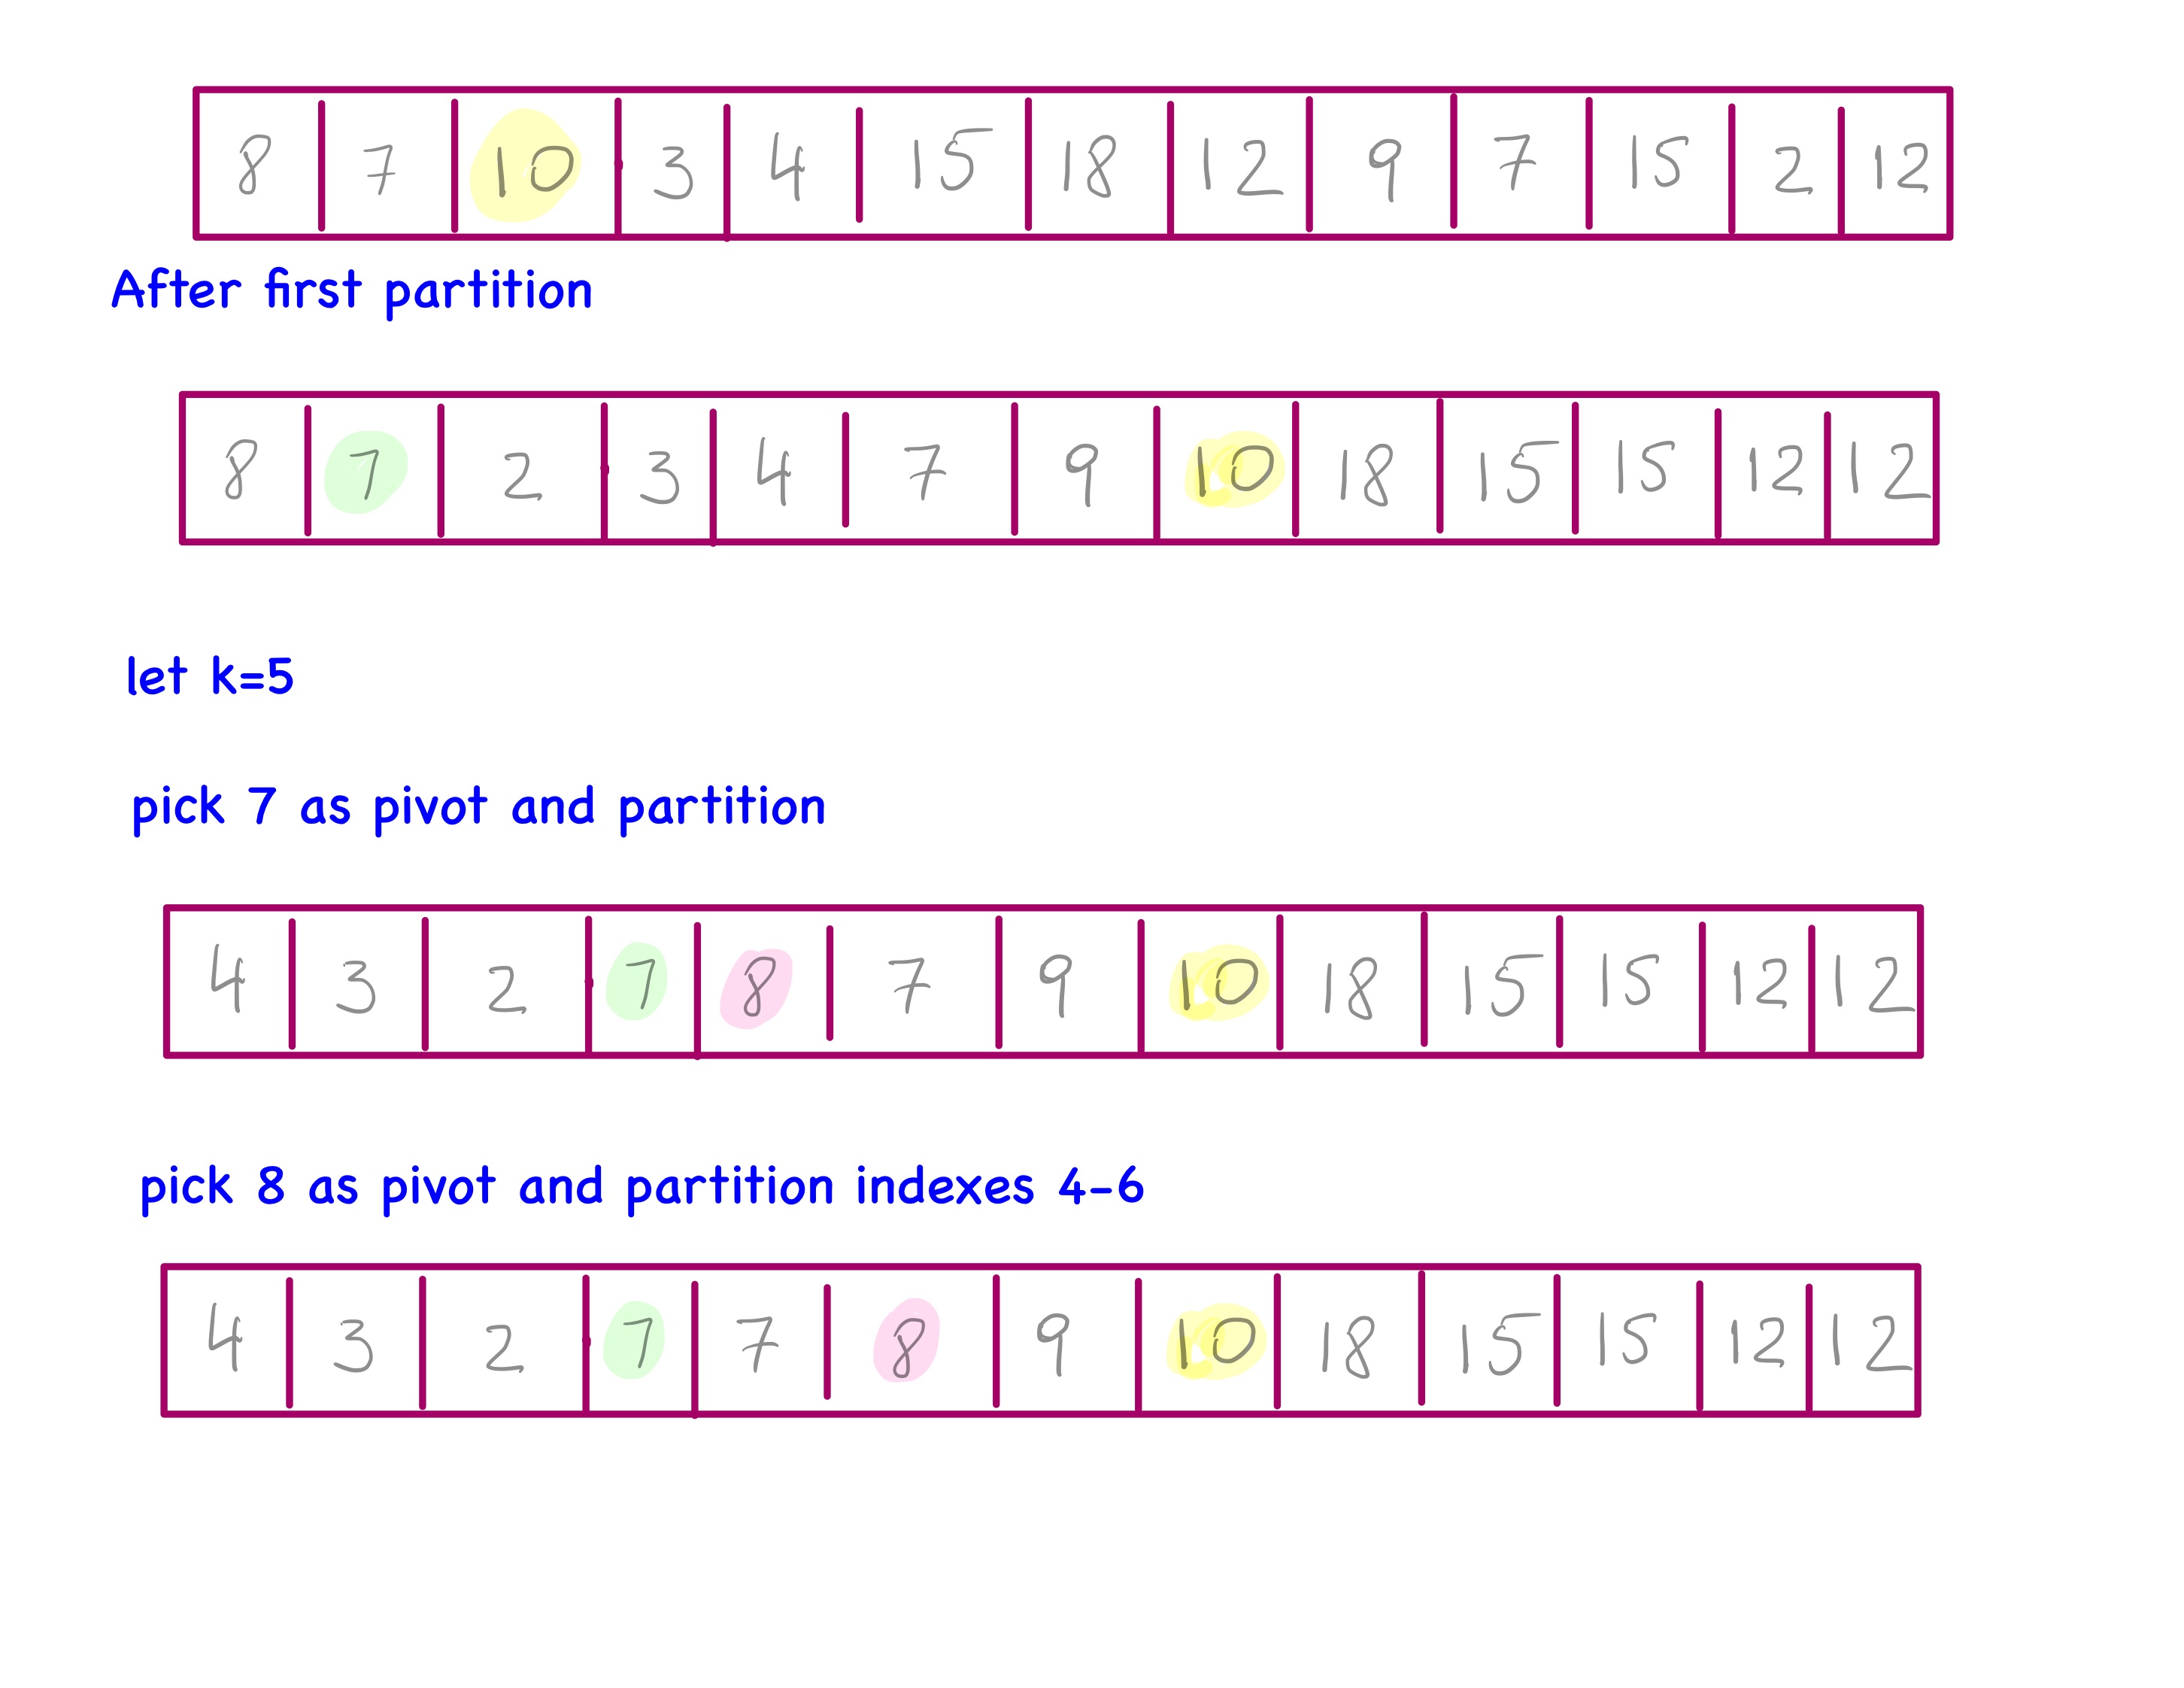 8 7 10 3 4 15 18 12 9 7 15 2 12
After first partition
8 7 2 3 4 7 9 10 18 15 15 12 12
let k=5
pick 7 as pivot and partition
4 3 2 7 8 7 9 10 18 15 15 12 12
pick 8 as pivot and partition indexes 4-6
4 3 2 7 7 8 9 10 18 15 15 12 12